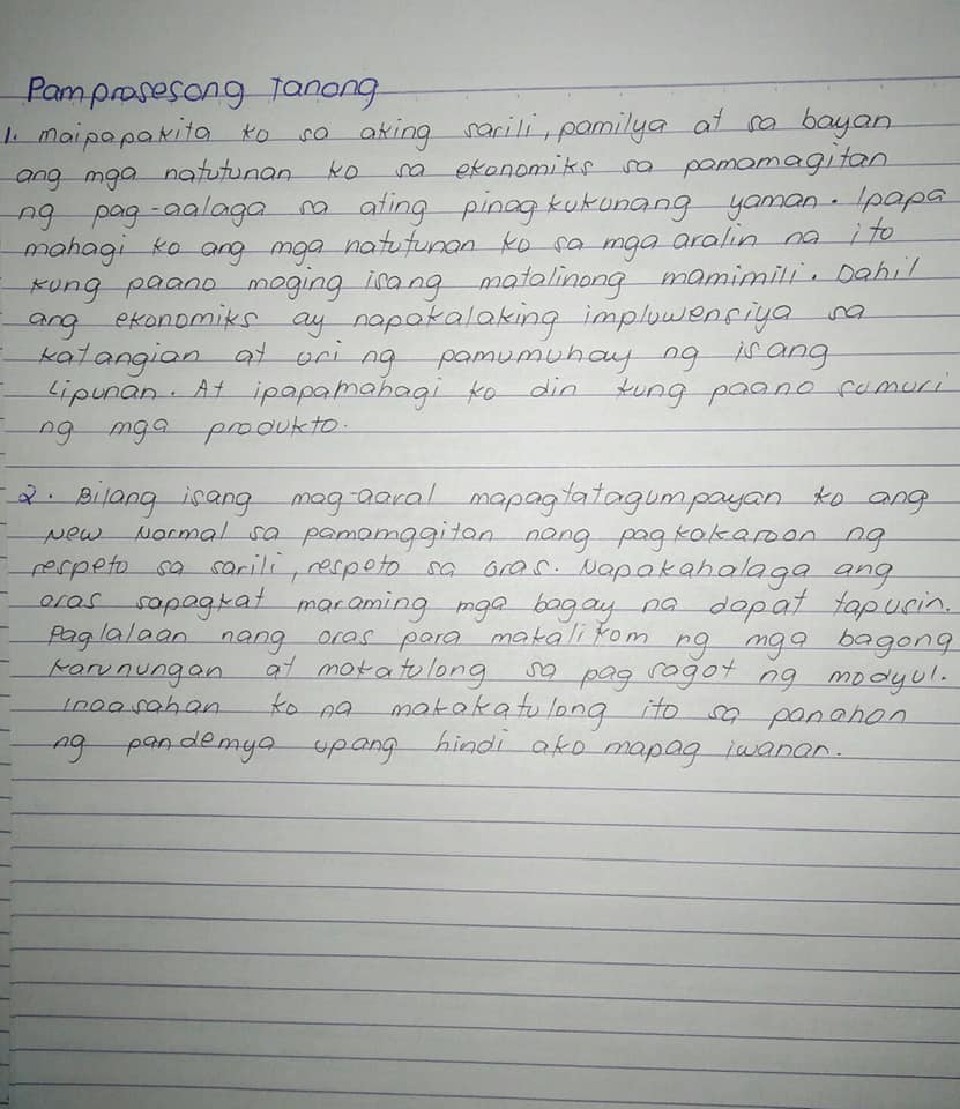 Pamprosesong Tanong
1. Maipapakita ko sa aking sarili, pamilya at sa bayan
ang mga natutunan ko sa ekonomiks sa pamamagitan
ng pag-aalaga sa ating pinagkukunang yaman. Ipapa
mahagi ko ang mga natutunan ko sa mga aralin na ito
kung paano maging isang matalinong mamimili. Dahil
ang ekonomiks ay napakalaking impluwensiya sa
katangian at uri ng pamumuhay ng isang
Lipunan. At ipapamahagi ko din kung paano sumuri
ng mga produkto.
2. Bilang isang mag-aaral mapagtatagumpayan ko ang
New Normal sa pamamggitan nang pagkakaroon ng
respeto sa sarili, respeto sa oras. Napakahalaga ang
oras sapagkat maraming mga bagay na dapat tapusin.
Paglalaan nang oras para makalikom ng mga bagong
karunungan at makatulong sa pag sagot ng modyul.
Inaasahan ko na makakatulong ito sa panahon
ng pandemya upang hindi ako mapag iwanan.